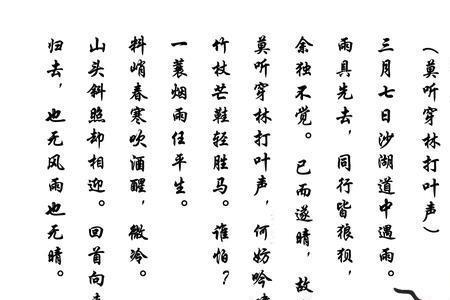 （莫听穿林打叶声）
三月七日沙湖道中遇雨。
雨具先去，同行皆狼狈，
余独不觉。已而遂晴，故
莫听穿林打叶声，何妨吟
竹杖芒鞋轻胜马。谁怕？
一蓑烟雨任平生。
料峭春寒吹酒醒，微冷。
山头斜照却相迎。回首向
归去，也无风雨也无晴。